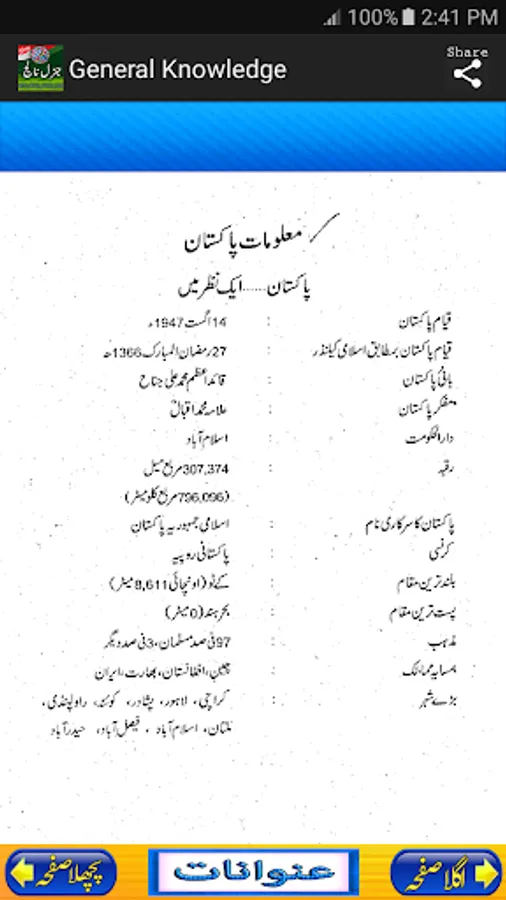 100% 2:41 PM
جنرل نالج General Knowledge Share
معلومات پاکستان
پاکستان.....ایک نظر میں
قیام پاکستان : 14 اگست 1947ء
قیام پاکستان بمطابق اسلامی کیلنڈر : 27 رمضان المبارک 1366ھ
بانیٔ پاکستان : قائد اعظم محمد علی جناح
مفکر پاکستان : علامہ محمد اقبالؒ
دارالحکومت : اسلام آباد
رقبہ : 307,374 مربع میل
(796,096 مربع کلومیٹر)
پاکستان کا سرکاری نام : اسلامی جمہوریہ پاکستان
کرنسی : پاکستانی روپیہ
بلند ترین مقام : کے ٹو (اونچائی 8,611 میٹر)
پست ترین مقام : بحر ہند (0 میٹر)
مذہب : 97 فی صد مسلمان، 3 فی صد دیگر
ہمسایہ ممالک : چین، افغانستان، بھارت، ایران
بڑے شہر : کراچی، لاہور، پشاور، کوئٹہ، راولپنڈی،
ملتان، اسلام آباد، فیصل آباد، حیدر آباد
اگلا صفحہ عنوانات پچھلا صفحہ